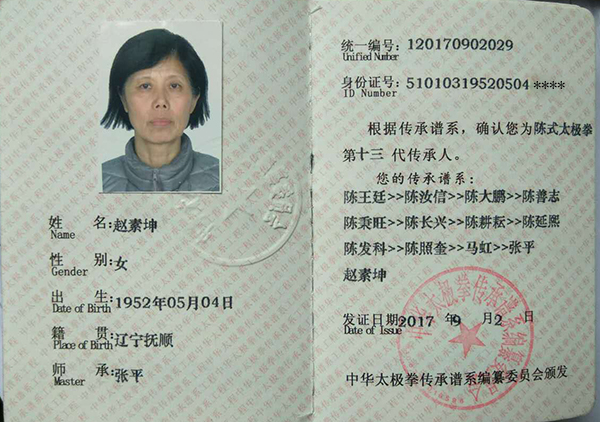 姓 名:赵素坤
Name
性 别:女
Gender
出 生:1952年05月04日
Date of Birth
籍 贯:辽宁抚顺
Place of Birth
师 承:张平
Master
统一编号: 120170902029
Unified Number
身份证号: 51010319520504 ****
ID Number
根据传承谱系,确认您为陈式太极拳
第十三 代传承人。
您的传承谱系:
陈王廷>>陈汝信>>陈大鹏>>陈善志
陈秉旺>>陈长兴>>陈耕耘>>陈延熙
陈发科>>陈照奎>>马虹>>张平
赵素坤
发证日期:2017 年9 月2 日
Date of Issue
中华太极拳传承谱系编纂委员会
中华太极拳传承谱系编纂委员会颁发